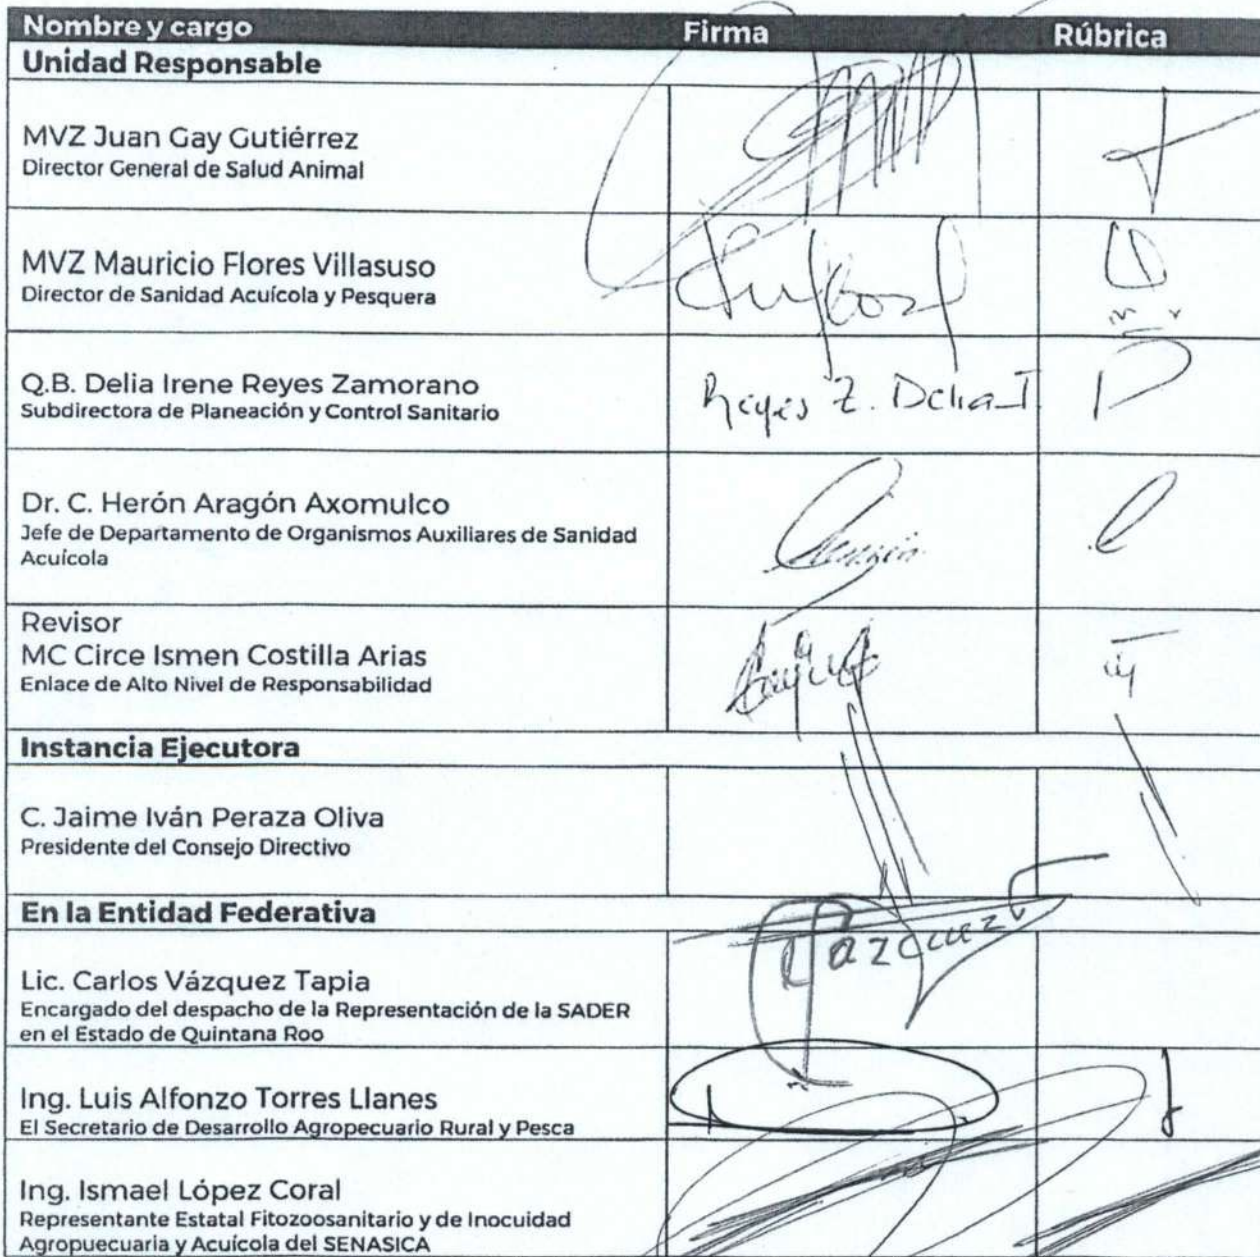 Nombre y cargo Firma Rúbrica
Unidad Responsable
MVZ Juan Gay Gutiérrez
Director General de Salud Animal
MVZ Mauricio Flores Villasuso
Director de Sanidad Acuícola y Pesquera
Q.B. Delia Irene Reyes Zamorano
Subdirectora de Planeación y Control Sanitario
Reyes Z. Delia I.
Dr. C. Herón Aragón Axomulco
Jefe de Departamento de Organismos Auxiliares de Sanidad
Acuícola
Revisor
MC Circe Ismen Costilla Arias
Enlace de Alto Nivel de Responsabilidad
Instancia Ejecutora
C. Jaime Iván Peraza Oliva
Presidente del Consejo Directivo
En la Entidad Federativa
Vazquez
Lic. Carlos Vázquez Tapia
Encargado del despacho de la Representación de la SADER
en el Estado de Quintana Roo
Ing. Luis Alfonzo Torres Llanes
El Secretario de Desarrollo Agropecuario Rural y Pesca
Ing. Ismael López Coral
Representante Estatal Fitozoosanitario y de Inocuidad
Agropuecuaria y Acuícola del SENASICA